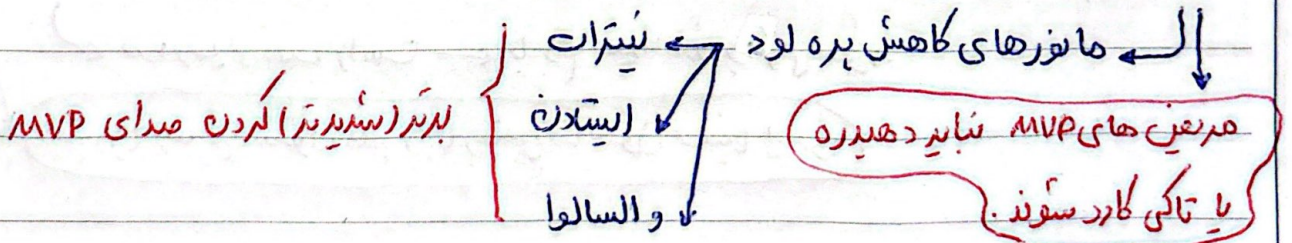 مانورهای کاهش پره لود → نیترات
ایستادن
والسالوا
بدتر (شدیدتر) کردن صدای MVP
مریض های MVP نباید دهیدره
یا تاکی کارد شوند.